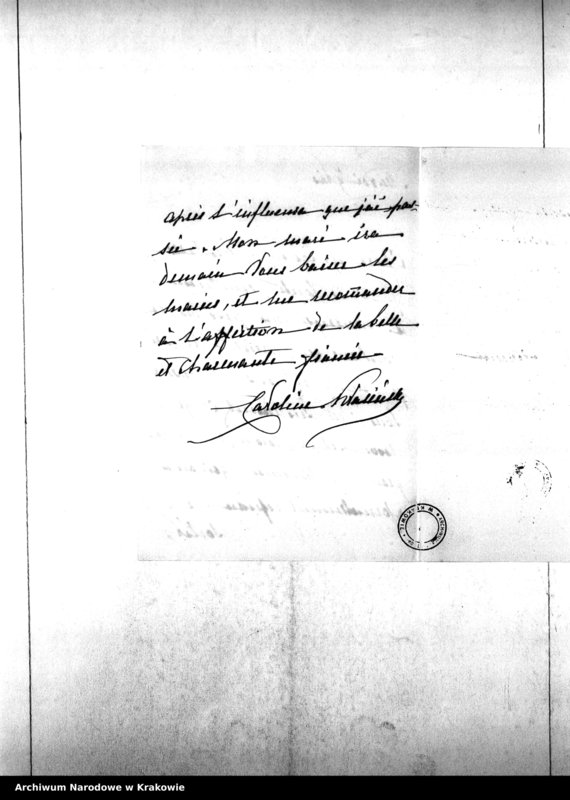 après l'influenza que j'ai pas-
sée. Mon mari ira
demain Vous baiser les
mains, et me recommander
à l'affection de la belle
et Charmante fiancée
Caroline
Archiwum Narodowe w Krakowie